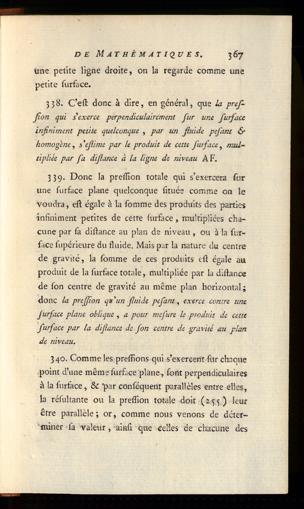 DE MATHÉMATIQUES. 367
une petite ligne droite, on la regarde comme une
petite surface.
338. C'est donc à dire, en général, que la pres-
sion qui s'exerce perpendiculairement sur une surface
infiniment petite quelconque, par un fluide pesant &
homogène, s'estime par le produit de cette surface, mul-
tipliée par sa distance à la ligne de niveau AF.
339. Donc la pression totale qui s'exercera sur
une surface plane quelconque située comme on le
voudra, est égale à la somme des produits des parties
infiniment petites de cette surface, multipliées cha-
cune par sa distance au plan de niveau, ou à la sur-
face supérieure du fluide. Mais par la nature du centre
de gravité, la somme de ces produits est égale au
produit de la surface totale, multipliée par la distance
de son centre de gravité au même plan horizontal;
donc la pression qu'un fluide pesant, exerce contre une
surface plane oblique, a pour mesure le produit de cette
surface par la distance de son centre de gravité au plan
de niveau.
340. Comme les pressions qui s'exercent sur chaque
point d'une même surface plane, sont perpendiculaires
à la surface, & par conséquent parallèles entre elles,
la résultante ou la pression totale doit (255) leur
être parallèle; or, comme nous venons de déter-
miner sa valeur, ainsi que celles de chacune des